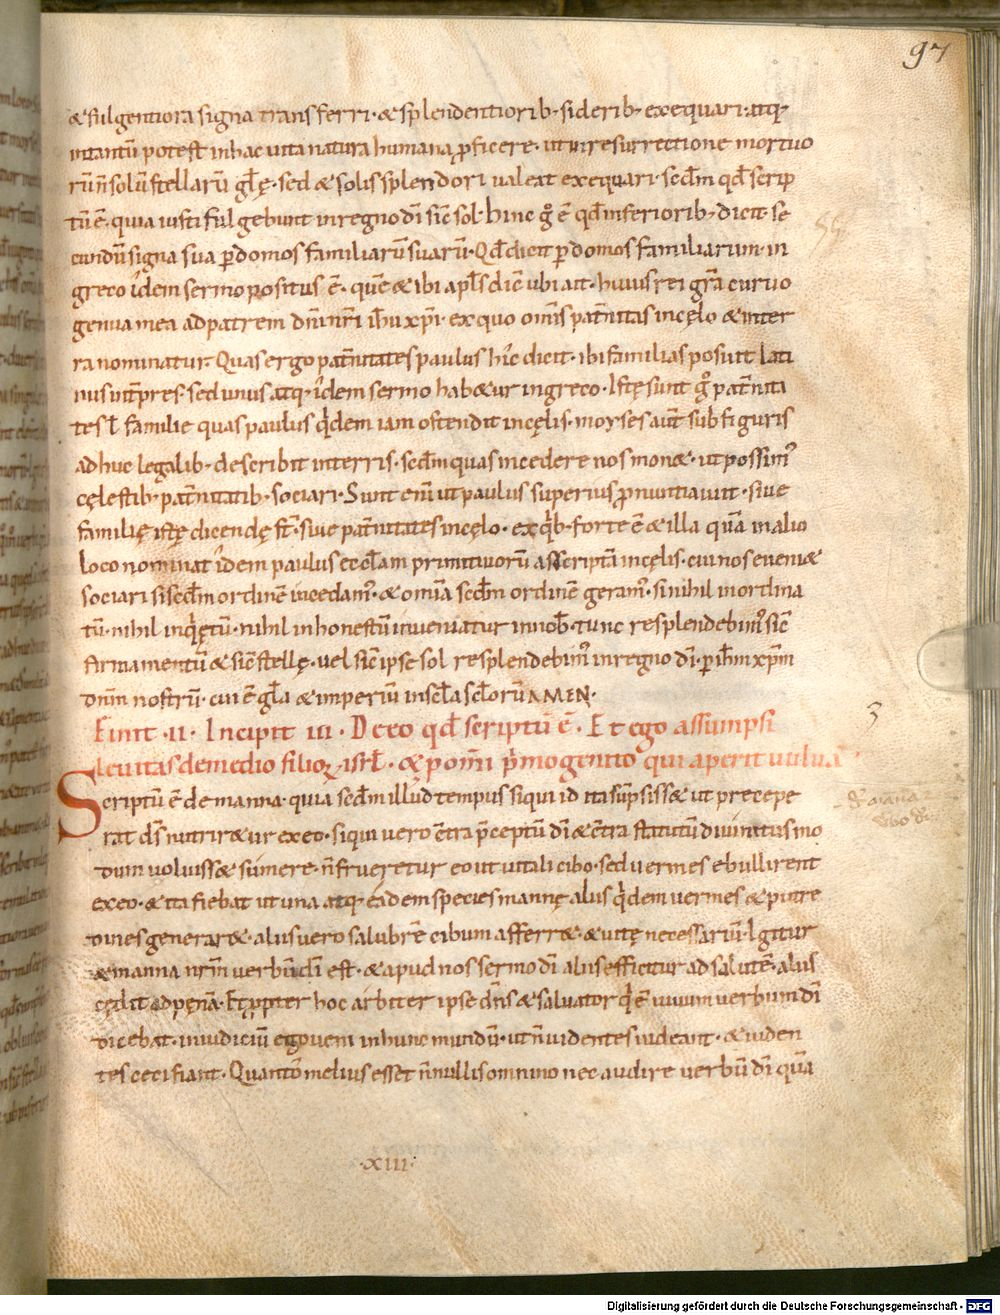 97
& fulgentiora signa transferri· & splendentiorib· siderib· exequari· atq·
intantū potest inhac uita natura humana ꝓficere· ut inresurrectione mortuo
rū ñ solū stellarū gl̄ę· sed & solis splendori ualeat exequari· scd̄m qd̄ scrip
tū ē· quia iusti fulgebunt inregno dī sic̄ sol· hinc gͦ ē qd̄ inferiorib· dicit· se
cundū signa sua ꝑ domos familiarū suarū· Qd̄ dicit ꝑ domos familiarum· in
greco idem sermo positus ē· quē & ibi apl̄s dic̄ ubi ait· huius rei gr̄a curuo
genua mea ad patrem dn̄i nr̄i ih̄u xp̄i· ex quo omīs pat̄nitas in cęlo & inter
ra nominatur· Quas ergo pat̄nitates paulus hic dicit· ibi familias posuit lati
nus int̄pres· sed unus atq· idem sermo hab&ur in greco· Istę sunt gͦ pat̄nita
tes ł familie quas paulus qͥdem iam ostendit in cęlis· moyses aut̄ sub figuris
ad huc legalib· describit interris· scd̄m quas incedere nos mon&· ut possimꝰ
cęlestib· pat̄nitatib· sociari· Sunt eni̅ ut paulus superius ꝓnuntiauit· siue
familię istę dicendę st̄· siue pat̄nitates in cęlo· ex qͥb· forte ē & illa quā in alio
loco nominat idem paulus eccl̄am primitiuorū asscriptā in cęlis· cui nos eueni&
sociari si scd̄m ordinē incedamꝰ· & omīa scd̄m ordinē geramꝰ· si nihil inordina
tū· nihil inqͥętū· nihil inhonestū inueniatur in nob̄· tunc resplendebimꝰ sic̄
firmamentū & sic̄ stellę· uel sic̄ ipse sol resplendebimꝰ in regno dī· ꝑ ih̄m xp̄m
dn̄m nostrū· cui ē gl̄a & imperiū in sc̄la sc̄lorū AMEN·
Finit ·II· Incipit III· De eo qd̄ scriptū ē· Et ego assumpsi
3
leuitas de medio filioꝝ isrl̄· & pomī pͥmogenito qui aperit uuluā·
Scriptū ē de manna· quia scd̄m illud tempus siqui id ita sūpsiss& ut precepe
rat ds̄ nutrir&ur ex eo· siqui uero c̄tra p̄ceptū dī & c̄tra statutū diuinitus mo
dum uoluiss& sumere· ñ frueretur eo ut uitali cibo· sed uermes ebullirent
ex eo· & ita fiebat ut una atq· eadem species mannę aliis qͥdem uermes & putre
dines generar&· aliis uero salubrē cibum afferr& & uitę necessarīu· Igitur
& manna nr̄m uerbū dī est· & apud nos sermo dī aliis efficitur ad salutē· aliis
cędit ad pęnā· Et ꝓpter hoc arbiter ipse dn̄s & saluator qͥ ē uiuum uerbum dī
dicebat· in iudiciū ego ueni in hunc mundū· ut ñ uidentes uideant· & uiden
tes ceci fiant· Quanto melius esset ñ nullis omnino nec audire uerbū dī quā
·XIII·
Digitalisierung gefördert durch die Deutsche Forschungsgemeinschaft - DFG